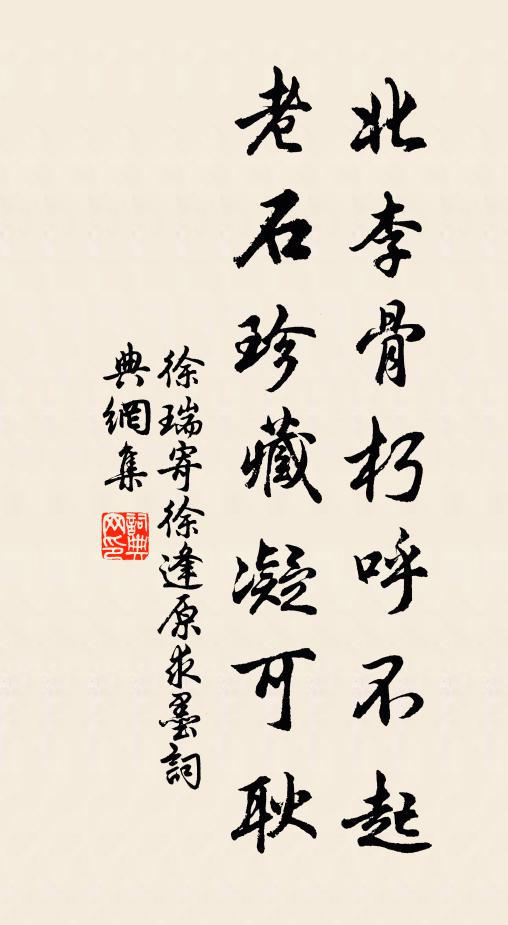 北李骨朽呼不起
老石珍藏凝可耿
徐瑞寄徐逢原求墨詞
典網集
詞典網印